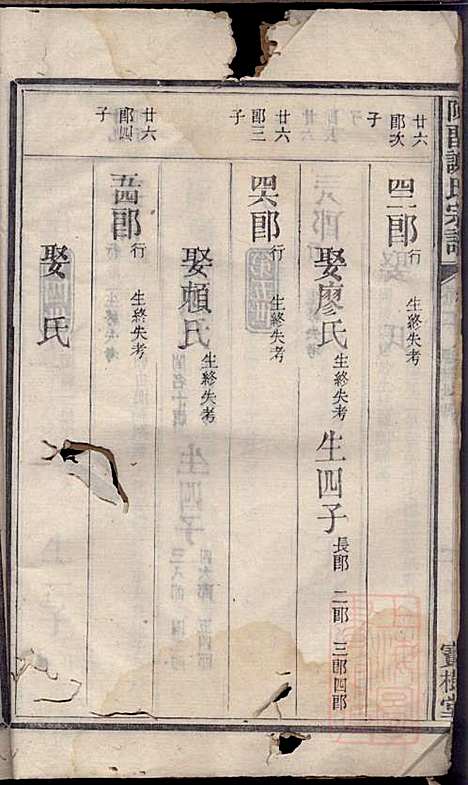 廿六郎次子
四二郎行 生終失考
娶廖氏生終失考 生四子長郎 二郎 三郎四郎
廿六郎三子
四六郎行 生終失考
娶賴氏生終失考
廿六郎四子
五四郎行 生終失考
娶 氏
氏宗譜
寶樹堂